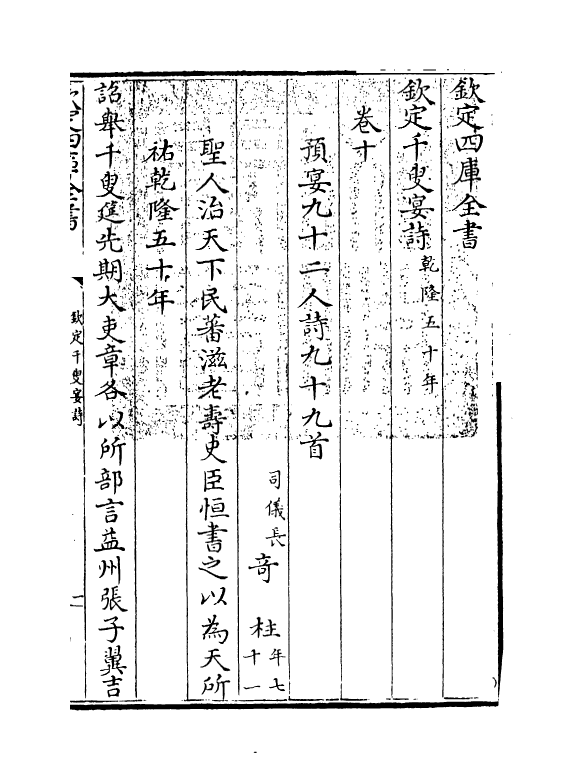 欽定四庫全書
欽定千叟宴詩乾隆五十年
卷十
預宴九十二人詩九十九首
司儀長奇柱年七十一
聖人治天下民蕃滋老壽史臣恒書之以為天所
祐乾隆五十年
詔舉千叟筵先期大吏章各以所部言益州張子翼吉
欽定四庫全書
欽定千叟宴詩